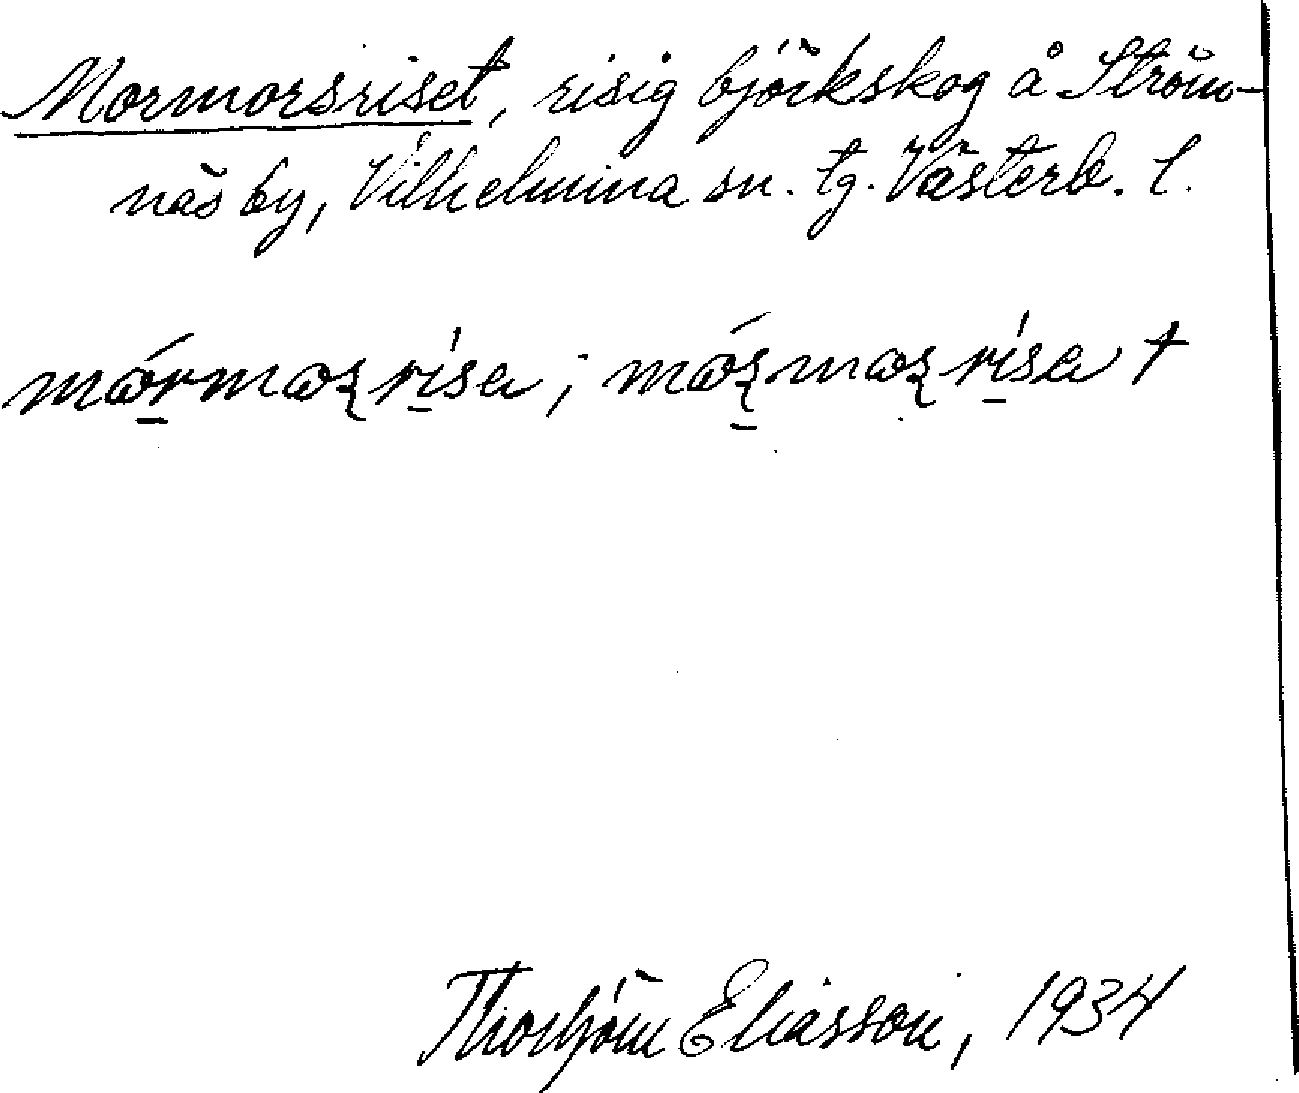 Mormorsriset, risig björkskog å Ström-
näs by, Vilhelmina sn. tg. Västerb. l.
mórmoʂrísa; móʂmoʂrísa †
Thorbjörn Eliasson, 1934